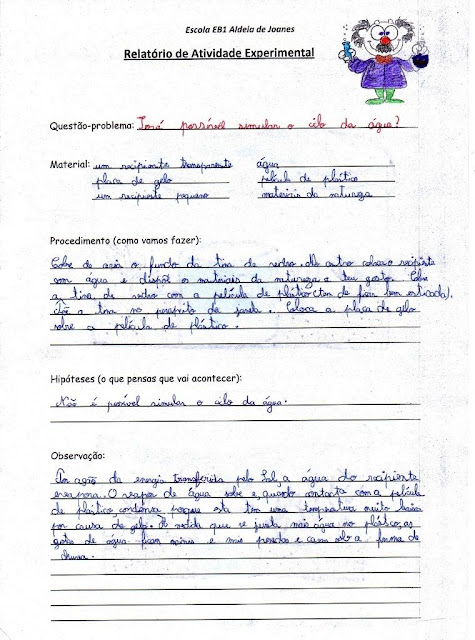 Escola EB1 Aldeia de Joanes
Relatório de Atividade Experimental
Questão-problema: Será possível simular o ciclo da água?
Material: um recipiente transparente água
placa de gelo película de plástico
um recipiente pequeno materiais da natureza
Procedimento (como vamos fazer):
Cobre de areia o fundo da tina de vidro. No centro coloca o recipiente
com água e dispõe os materiais da natureza a teu gosto. Cobre
a tina de vidro com a película de plástico (tem de ficar bem esticada).
Põe a tina no parapeito da janela. Coloca a placa de gelo
sobre a película de plástico.
Hipóteses (o que pensas que vai acontecer):
Não é possível simular o ciclo da água.
Observação:
Por ação da energia transferida pelo Sol, a água do recipiente
evapora. O vapor de água sobe e, quando contacta com a película
de plástico, condensa porque esta tem uma temperatura muito baixa
por causa do gelo. À medida que se junta mais água no plástico, as
gotas de água ficam maiores e mais pesadas e caem sob a forma de
chuva.